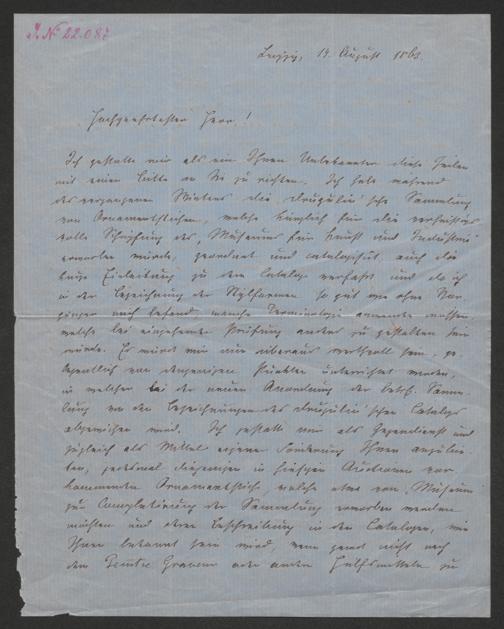 J. N. 22.087
Leipzig, 19. August 1863.
Hochgeehrtester Herr!
Ich gestatte mir als ein Ihnen Unbekannter diese Zeilen
mit einer Bitte an Sie zu richten. Ich habe während
des vergangenen Winters die Drugulin'sche Sammlung
von Ornamentstichen, welche kürzlich für die
volle Schöpfung des "Museums für Kunst und Industrie"
erworben wurde, geordnet und catalogisirt, auch die
kurze Einleitung zu dem Cataloge verfaßt und da ich
in der Bezeichnung der Stylformen so gut wie ohne Vor-
gänger mich befand, manche Terminologie anwenden müssen,
welche bei eingehender Prüfung anders zu gestalten sein
würde. Es würde mir nun überaus werthvoll sein, ge-
legentlich von denjenigen Punkten unterrichtet zu werden,
in welchen bei der neuen Anordnung der betr. Samm-
lung von den Bezeichnungen des Drugulin'schen Catalogs
abgewichen wird. Ich gestatte mir als Gegendienst und
zugleich als Mittel eigener Förderung Ihnen anzubie-
ten, diejenigen in hiesigen Auctionen vor-
kommenden Ornamentstiche, welche etwa vom Museum
zur Completirung der Sammlung erworben werden
möchten und deren Beschreibung in den Catalogen, wie
Ihnen bekannt sein wird, meist nicht nach
dem Peintre Graveur oder andern Hülfsmitteln zu